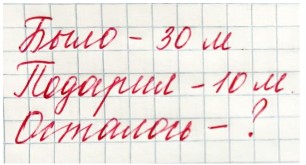 Было – 30 м
Подарил – 10 м.
Осталось – ?